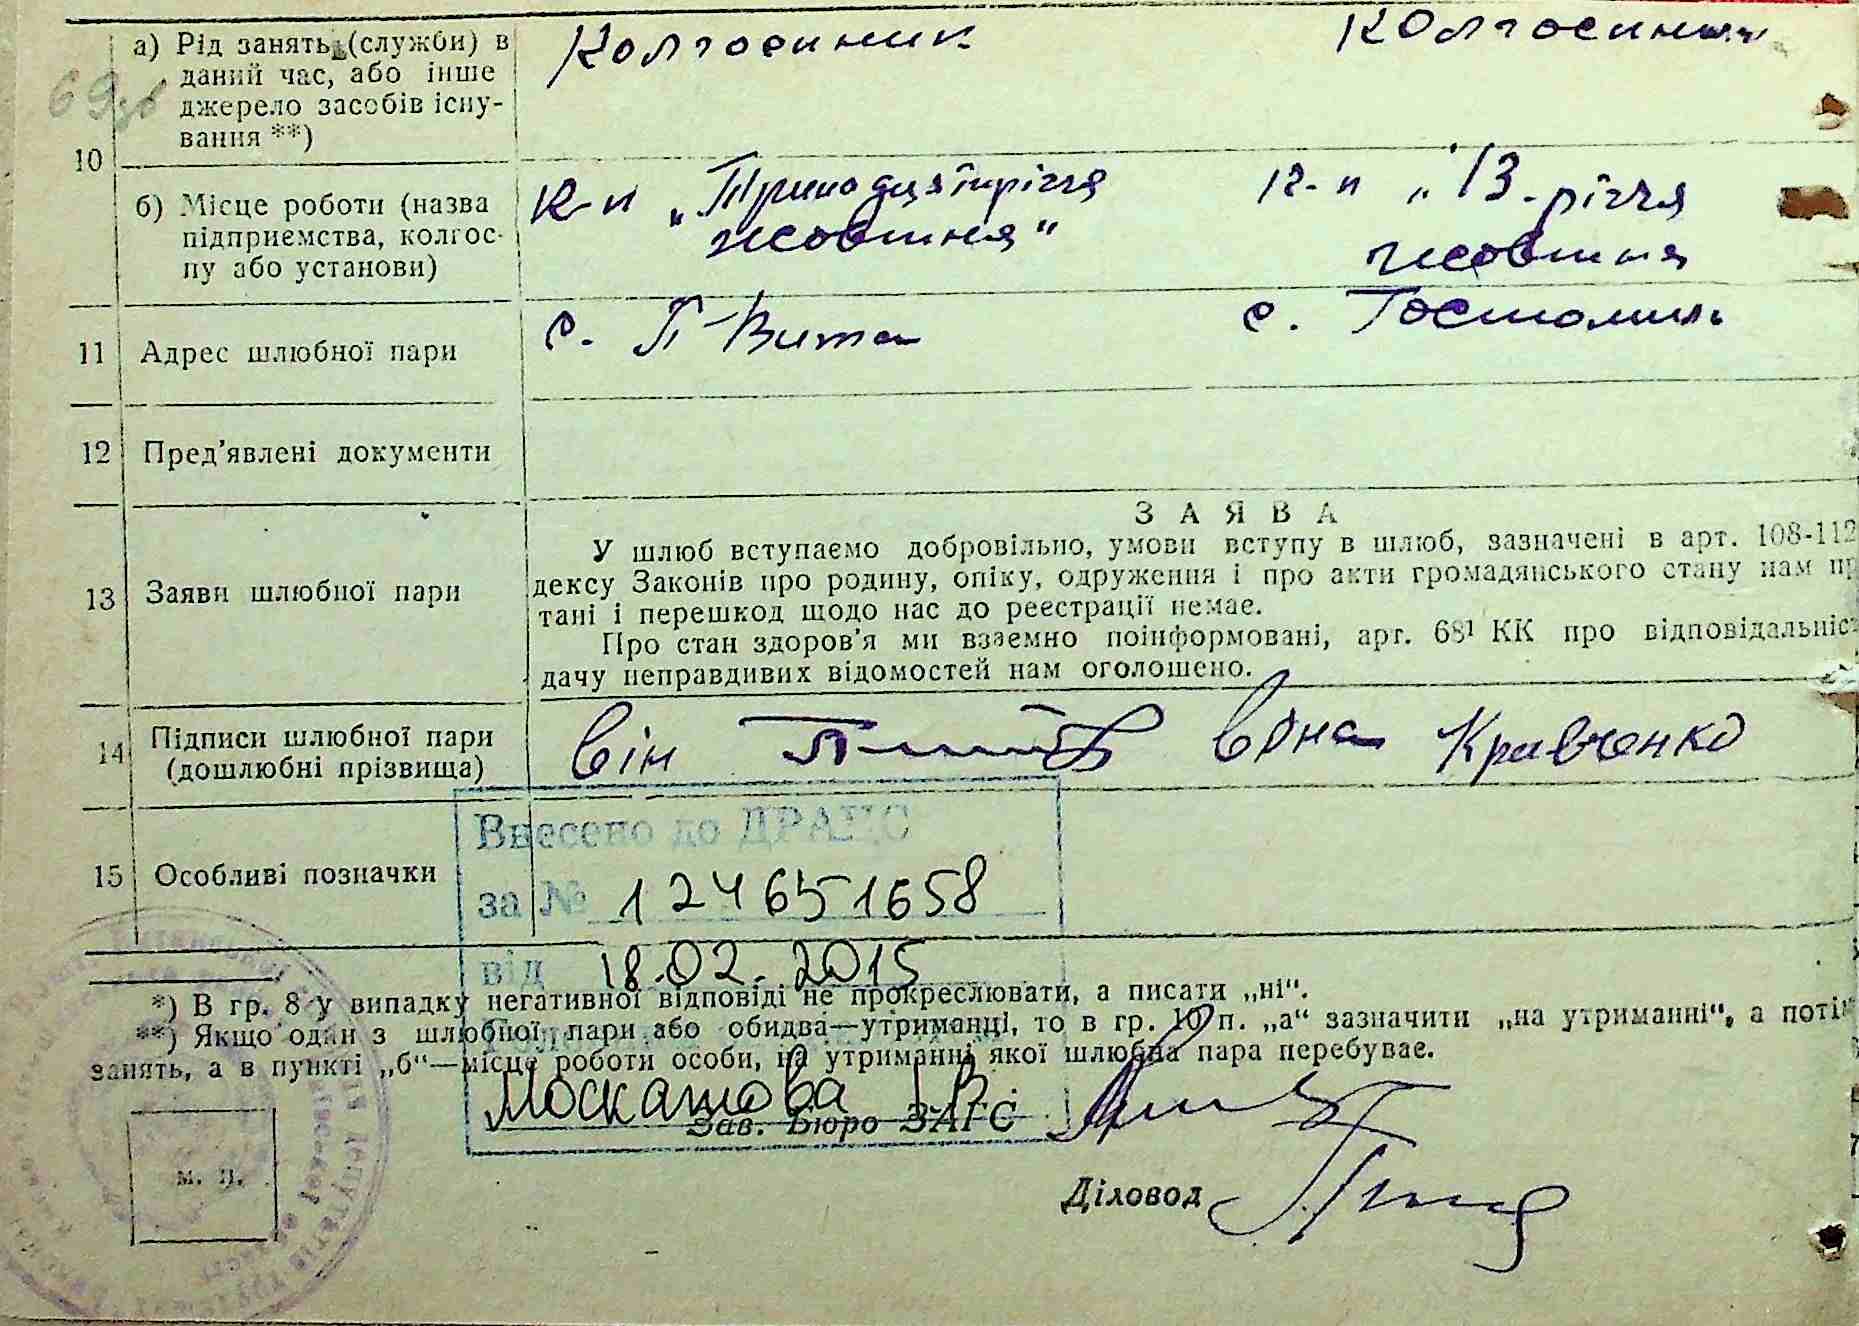 а) Рід занять (служби) в
даний час, або інше
джерело засобів існу-
вання **)
Колгоспник
Колгоспниця
10
б) Місце роботи (назва
підприємства, колгос-
пу або установи)
к-п „Тринадцятиріччя
жовтня“
к-п „13-річчя
жовтня
11 Адрес шлюбної пари
с. П-Вита
с. Гостомиль
12 Пред'явлені документи
13 Заяви шлюбної пари
ЗАЯВА
У шлюб вступаємо добровільно, умови вступу в шлюб, зазначені в арт. 108-112
дексу Законів про родину, опіку, одруження і про акти громадянського стану нам пр
тані і перешкод щодо нас до реєстрації немає.
Про стан здоров'я ми взаємно поінформовані, арт. 68¹ КК про відповідальніс
дачу неправдивих відомостей нам оголошено.
14 Підписи шлюбної пари
(дошлюбні прізвища)
він
вона Кравченко
15 Особливі позначки
Внесено до ДРАЦС
за № 124651658
від 18.02.2015
*) В гр. 8 у випадку негативної відповіді не прокреслювати, а писати „ні“.
**) Якщо один з шлюбної пари або обидва—утриманці, то в гр. 10 п. „а“ зазначити „на утриманні“, а поті
занять, а в пункті „б“—місце роботи особи, на утриманні якої шлюбна пара перебуває.
Зав. Бюро ЗАГС
м. п.
Діловод